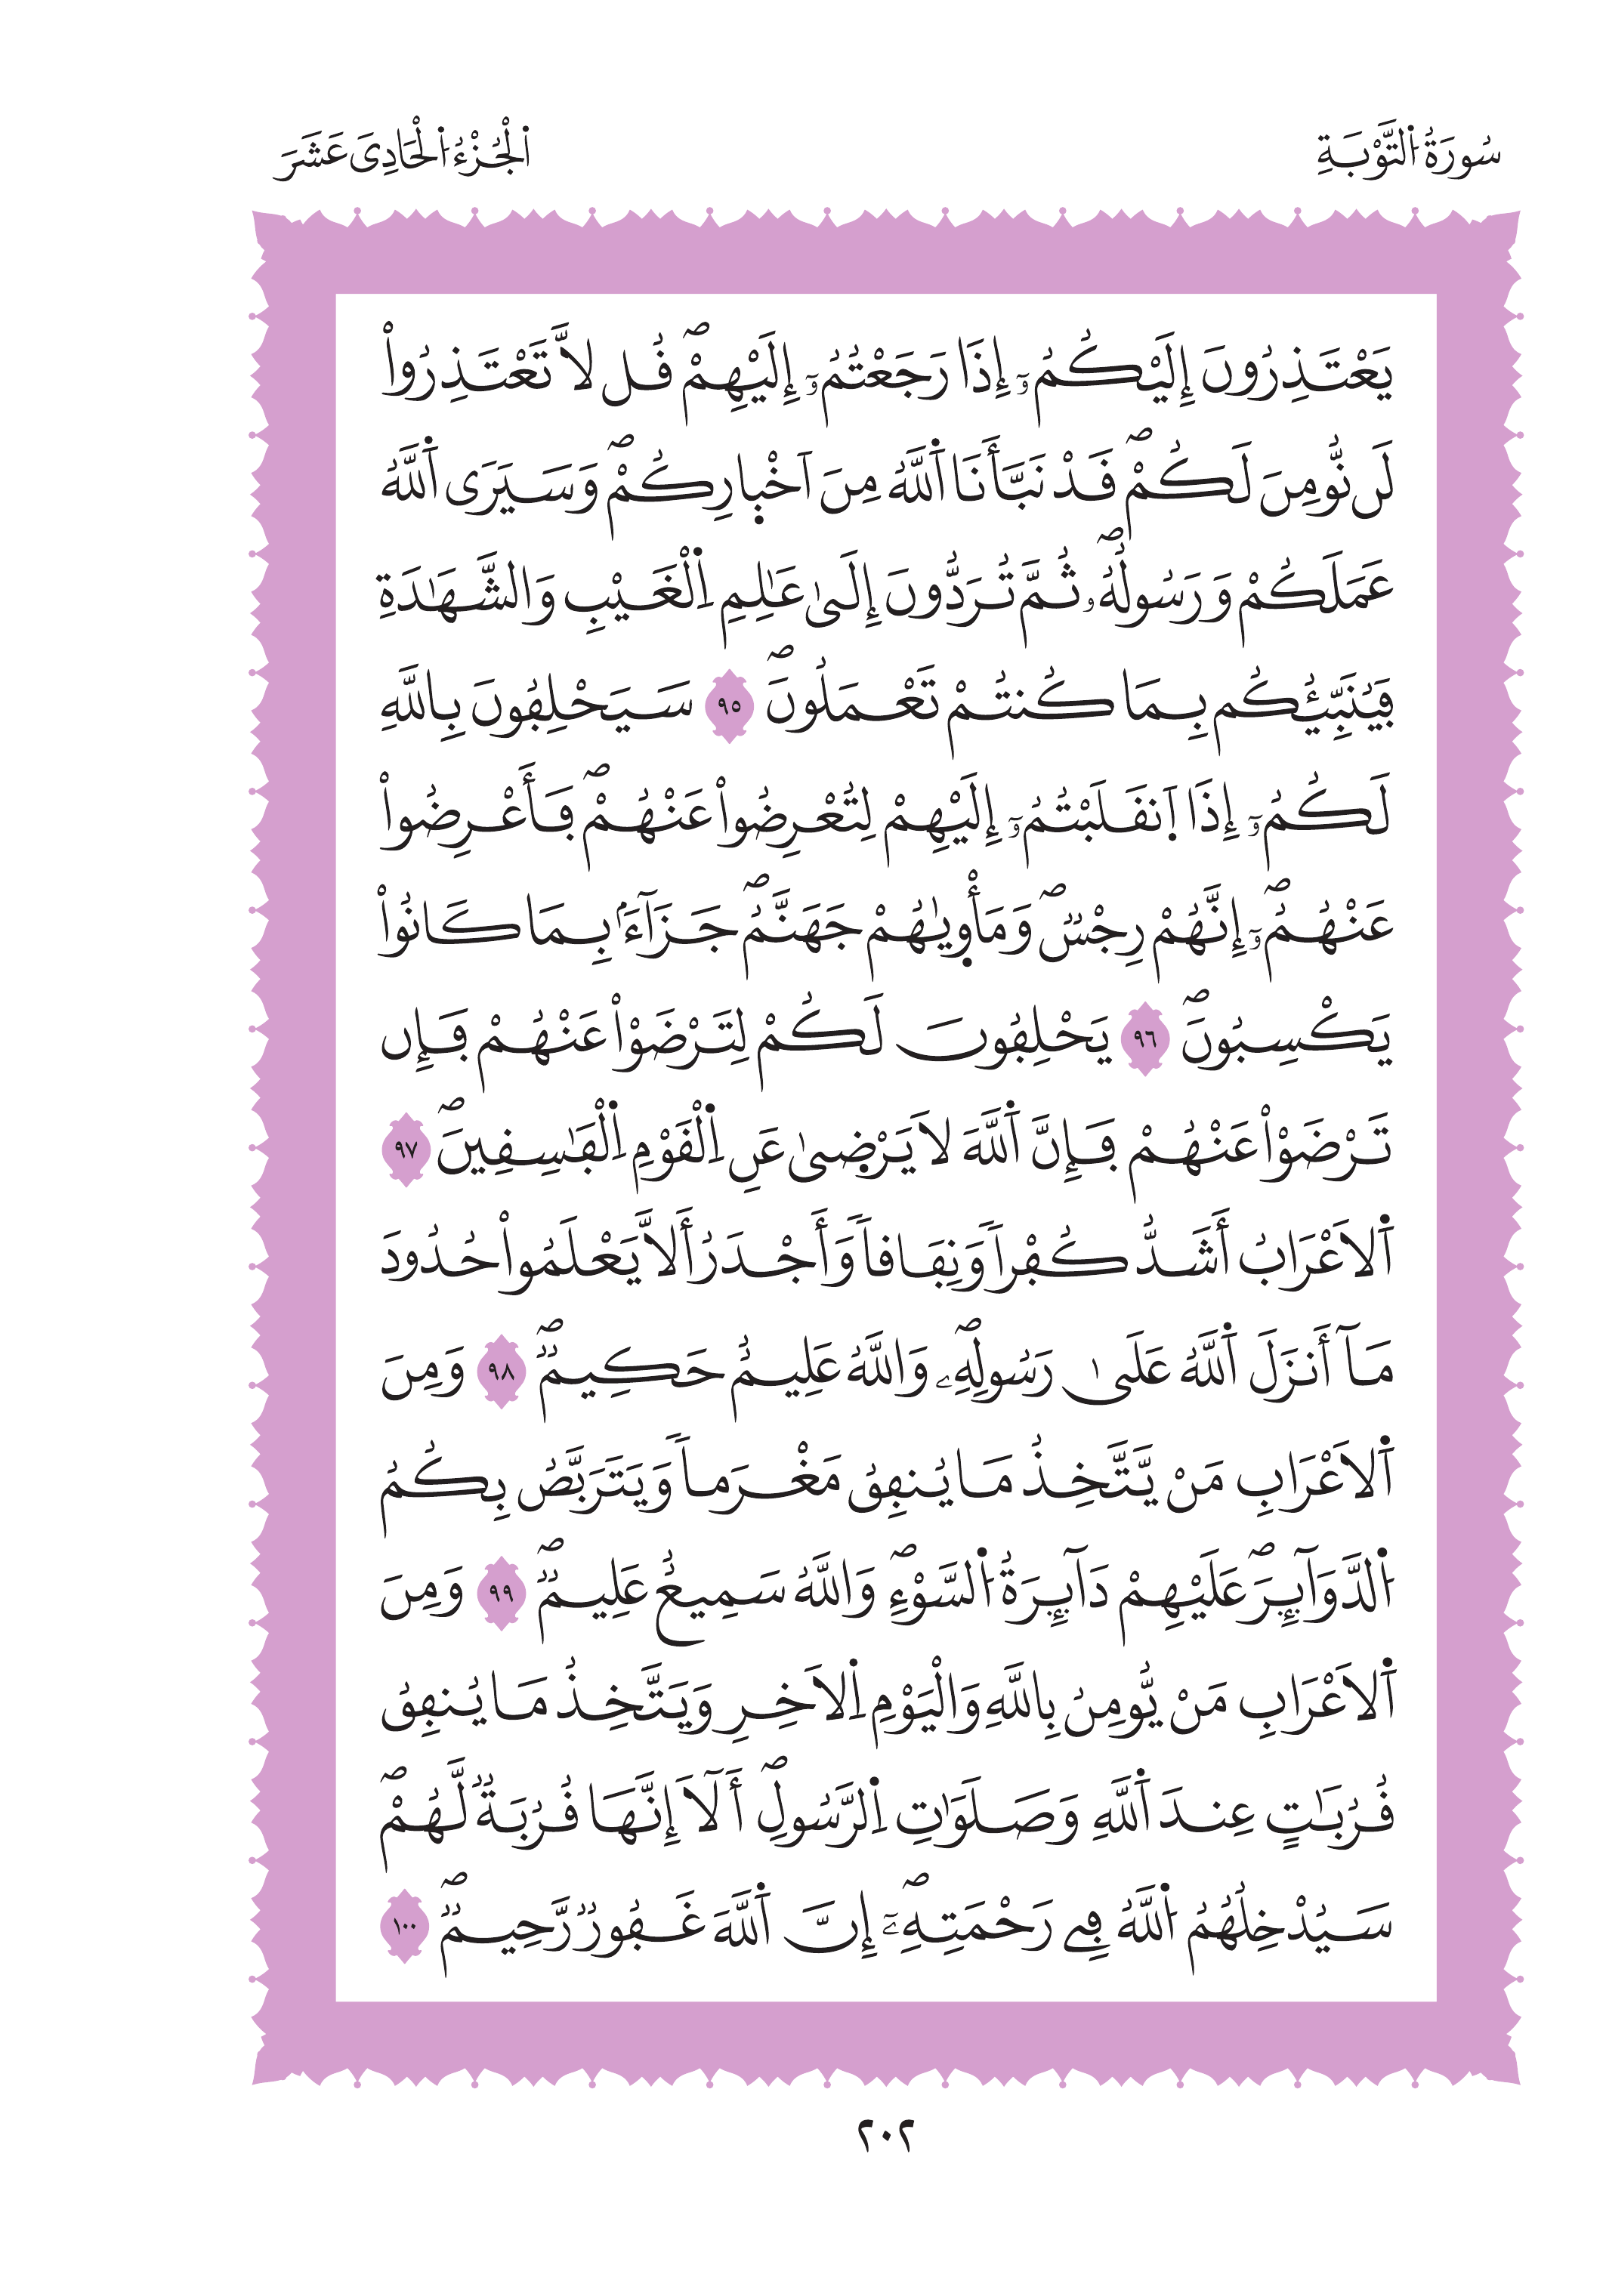 سُورَةُ اُ۬لتَّوْبَةِ
اَ۬لْجُزْءُ اُ۬لْحَادِيَ عَشَرَ
يَعْتَذِرُونَ إِلَيْكُمُۥٓ إِذَا رَجَعْتُمُۥٓ إِلَيْهِمْۖ قُل لَّا تَعْتَذِرُواْ
لَن نُّومِنَ لَكُمْۖ قَدْ نَبَّأَنَا اَ۬للَّهُ مِنَ اَخْبِارِكُمْۖ وَسَيَرَي اَ۬للَّهُ
عَمَلَكُمْ وَرَسُولُهُۥۖ ثُمَّ تُرَدُّونَ إِلَيٰ عَٰلِمِ اِ۬لْغَيْبِ وَالشَّهَٰدَةِ
فَيُنَبِّئُكُم بِمَا كُنتُمْ تَعْمَلُونَۖ ٩٥ سَيَحْلِفُونَ بِاللَّهِ
لَكُمُۥٓ إِذَا اَ۪نقَلَبْتُمُۥٓ إِلَيْهِمْ لِتُعْرِضُواْ عَنْهُمْۖ فَأَعْرِضُواْ
عَنْهُمُۥٓۖ إِنَّهُمْ رِجْسٞۖ وَمَأْو۪يٰهُمْ جَهَنَّمُۖ جَزَآءَۢ بِمَا كَانُواْ
يَكْسِبُونَۖ ٩٦ يَحْلِفُونَ لَكُمْ لِتَرْضَوْاْ عَنْهُمْ فَإِن
تَرْضَوْاْ عَنْهُمْ فَإِنَّ اَ۬للَّهَ لَا يَرْض۪يٰ عَنِ اِ۬لْقَوْمِ اِ۬لْفَٰسِقِينَۖ ٩٧
اَ۬لَاعْرَابُ أَشَدُّ كُفْراٗ وَنِفَاقاٗ وَأَجْدَرُ أَلَّا يَعْلَمُواْ حُدُودَ
مَآ أَنزَلَ اَ۬للَّهُ عَلَيٰ رَسُولِهِۦۖ وَاللَّهُ عَلِيمٌ حَكِيمٞۖ ٩٨ وَمِنَ
اَ۬لَاعْرَابِ مَنْ يَّتَّخِذُ مَا يُنفِقُ مَغْرَماٗ وَيَتَرَبَّصُ بِكُمُ
اُ۬لدَّوَآئِرَۖ عَلَيْهِمْ دَآئِرَةُ اُ۬لسَّوْءِۖ وَاللَّهُ سَمِيعٌ عَلِيمٞۖ ٩٩ وَمِنَ
اَ۬لَاعْرَابِ مَنْ يُّومِنُ بِاللَّهِ وَالْيَوْمِ اِ۬لَاخِرِ وَيَتَّخِذُ مَا يُنفِقُ
قُرُبَٰتٍ عِندَ اَ۬للَّهِ وَصَلَوَٰتِ اِ۬لرَّسُولِۖ أَلَآ إِنَّهَا قُرُبَةٞ لَّهُمْۖ
سَيُدْخِلُهُمُ اُ۬للَّهُ فِي رَحْمَتِهِۦٓۖ إِنَّ اَ۬للَّهَ غَفُورٞ رَّحِيمٞۖ ١٠٠
٢٠٢